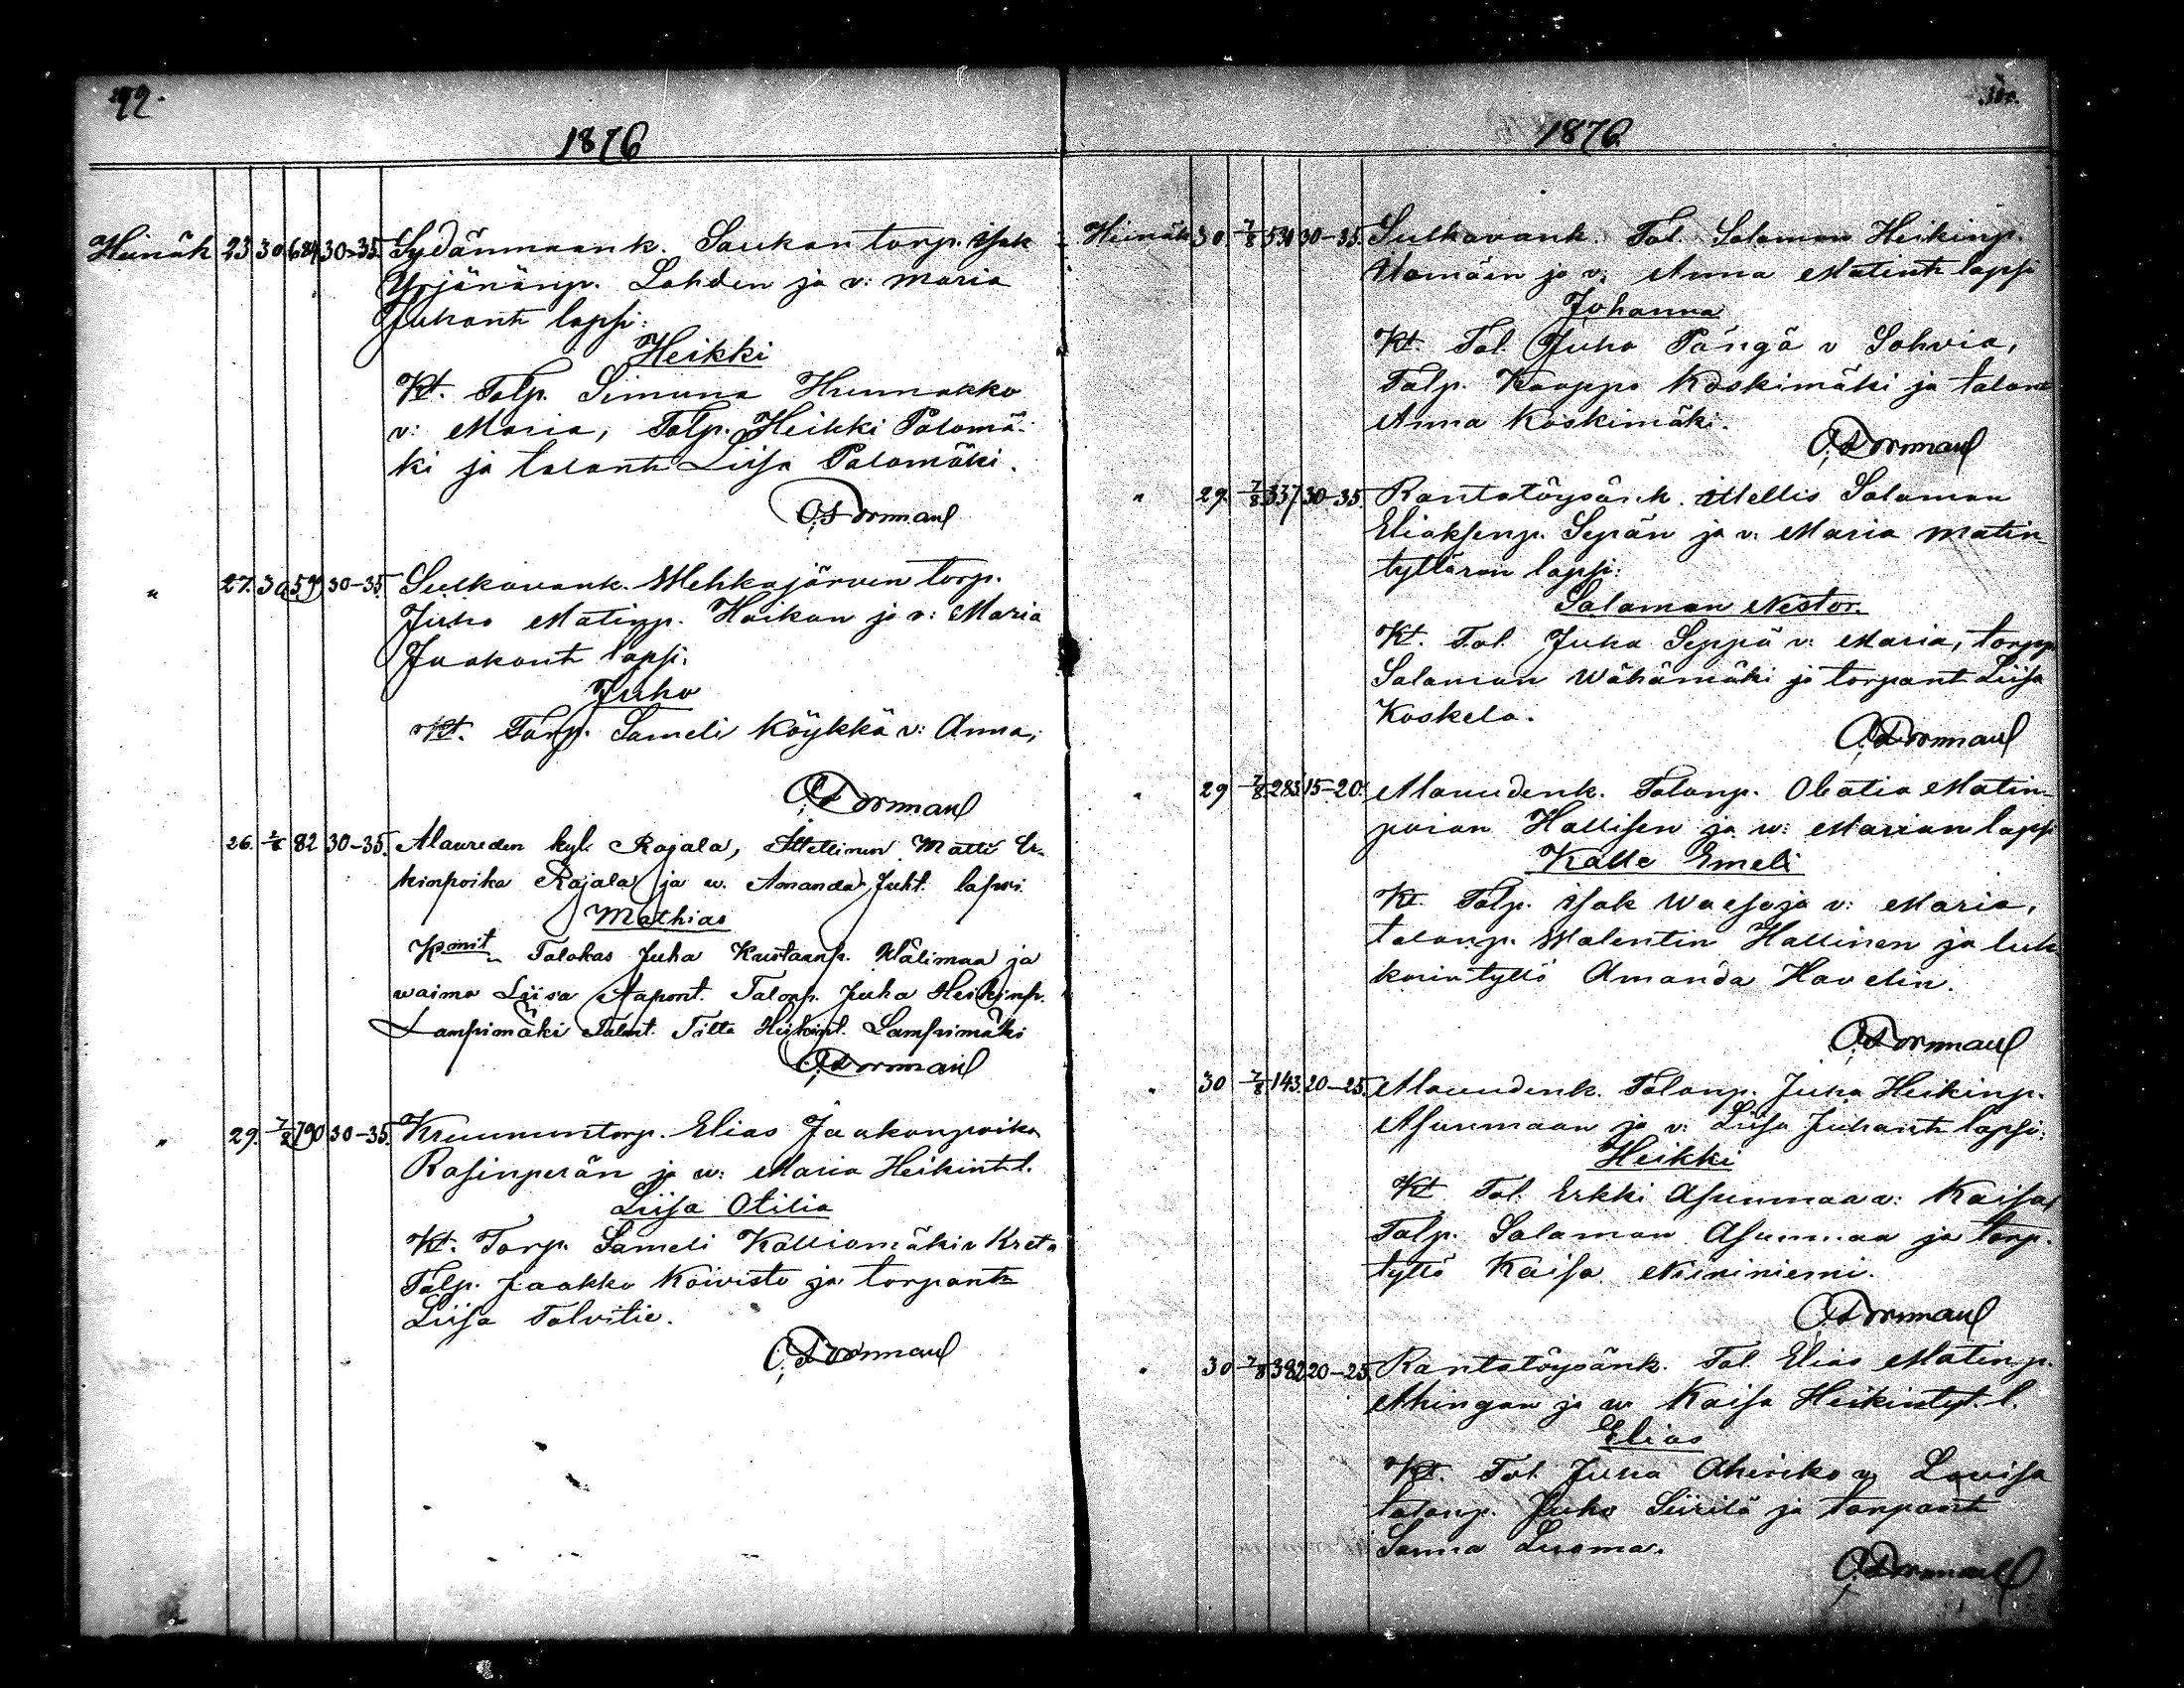 92.
1876
Heinäk 23 30 684 30-35. Sydänmaank. Saukon torp. Isak
Yrjänänp. Lahden ja v: Maria
Juhont lapsi:
Heikki
Kt. Talp. Simuna Hunnakko
v: Maria, Talp. Heikki Palomä-
ki ja talont Liisa Palomäki.
" 27. 30 30-35. Sulkavank. Mehkajärven torp.
Juho Matinp. Haikan ja v: Maria
Jaakont lapsi.
Juho
Kt. Torp. Sameli Köykkä v: Anna,
26. 2/8 82 30-35. Alavuden kyl. Rajala, Itellinen Matti Er-
kinpoika Rajala ja w. Amanda Juht. lapsi
Mathias
Kmit Talokas Juha Kustaanp. Wälimaa ja
waimo Liisa Aapont. Talonp. Juha Heikinp.
Lampimäki Talont. Tilta Heikint. Lampimäki
" 29. 7/8 790 30-35. Kruununtorp. Elias Jaakonpoika
Rasinperän ja w: Maria Heikint l.
Liisa Otilia
Kt. Torp. Sameli Kalliomäki v Kreta
Talp. Jaakko Koivisto ja torpant
Liisa Talvitie.
1876
Heinäk 30 7/8 530 30-35. Sulkavank. Tal. Salomon Heikinp.
ja v: Anna Matint lapsi
Johanna
Kt. Tal. Juho Pängä v Sohvia,
Talp. Kaappo Koskimäki ja talont
Anna Koskimäki.
" 29. 7/8 337 30-35. Rantatöysänk. Itellis Salomon
Eliaksenp. Sepän ja v: Maria Matin-
tyttären lapsi:
Salamon Nestor.
Kt. Tal. Juha Seppä v: Maria, torpp
Salamon Wähämäki ja torpant Liisa
Koskela.
" 29 7/8 283 15-20. Alavudenk. Talonp. Obatia Matin-
poian Hallisen ja w: Marian lapsi
Kalle Emeli
Kt. Talp. Isak ja v: Maria,
talonp. Walentin Hallinen ja luk-
karin tyttö Amanda Havelin.
" 30 7/8 143. 20-25. Alavudenk. Talonp. Juha Heikinp.
Asunmaan ja v: Liisa Juhont lapsi:
Heikki
Kt Tal. Erkki Asunmaa v: Kaisa,
Talp. Salamon Asunmaa ja torp.
tyttö Kaisa Niininiemi.
" 30 7/8 382 20-25. Rantatöysänk. Tal. Elias Matinp.
Ahingon ja w Kaisa Heikintyt. l.
Elias
Kt. Tal. Juha Ahinko v. Lovisa
talonp. Juho Siirilä ja torpant
Sanna Luoma.